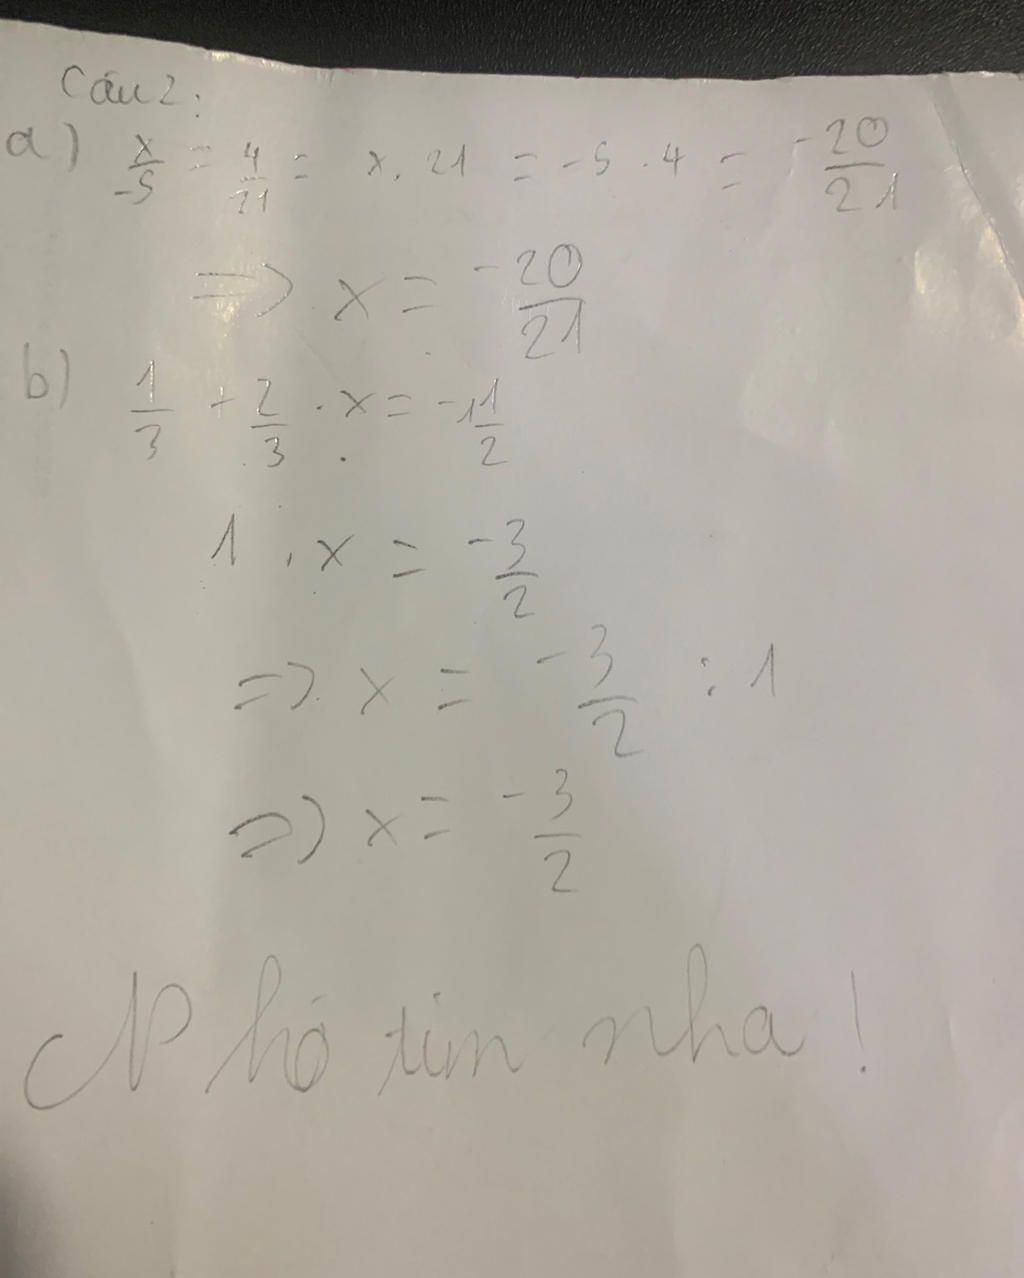 Câu 2:
a) x/-5 = 4/21 = x . 21 = -5 . 4 = -20/21
=> x = -20/21
b) 1/3 + 2/3 . x = -1 1/2
1 . x = -3/2
=> x = -3/2 : 1
=> x = -3/2
Nhớ tim nha!